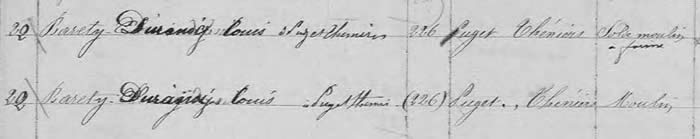 22 Barety Durandy Louis à Puget Théniers 226 Puget Théniers Sol de moulin
à farine
22 Barety Durandy Louis à Puget Théniers (226) Puget, Théniers Moulin